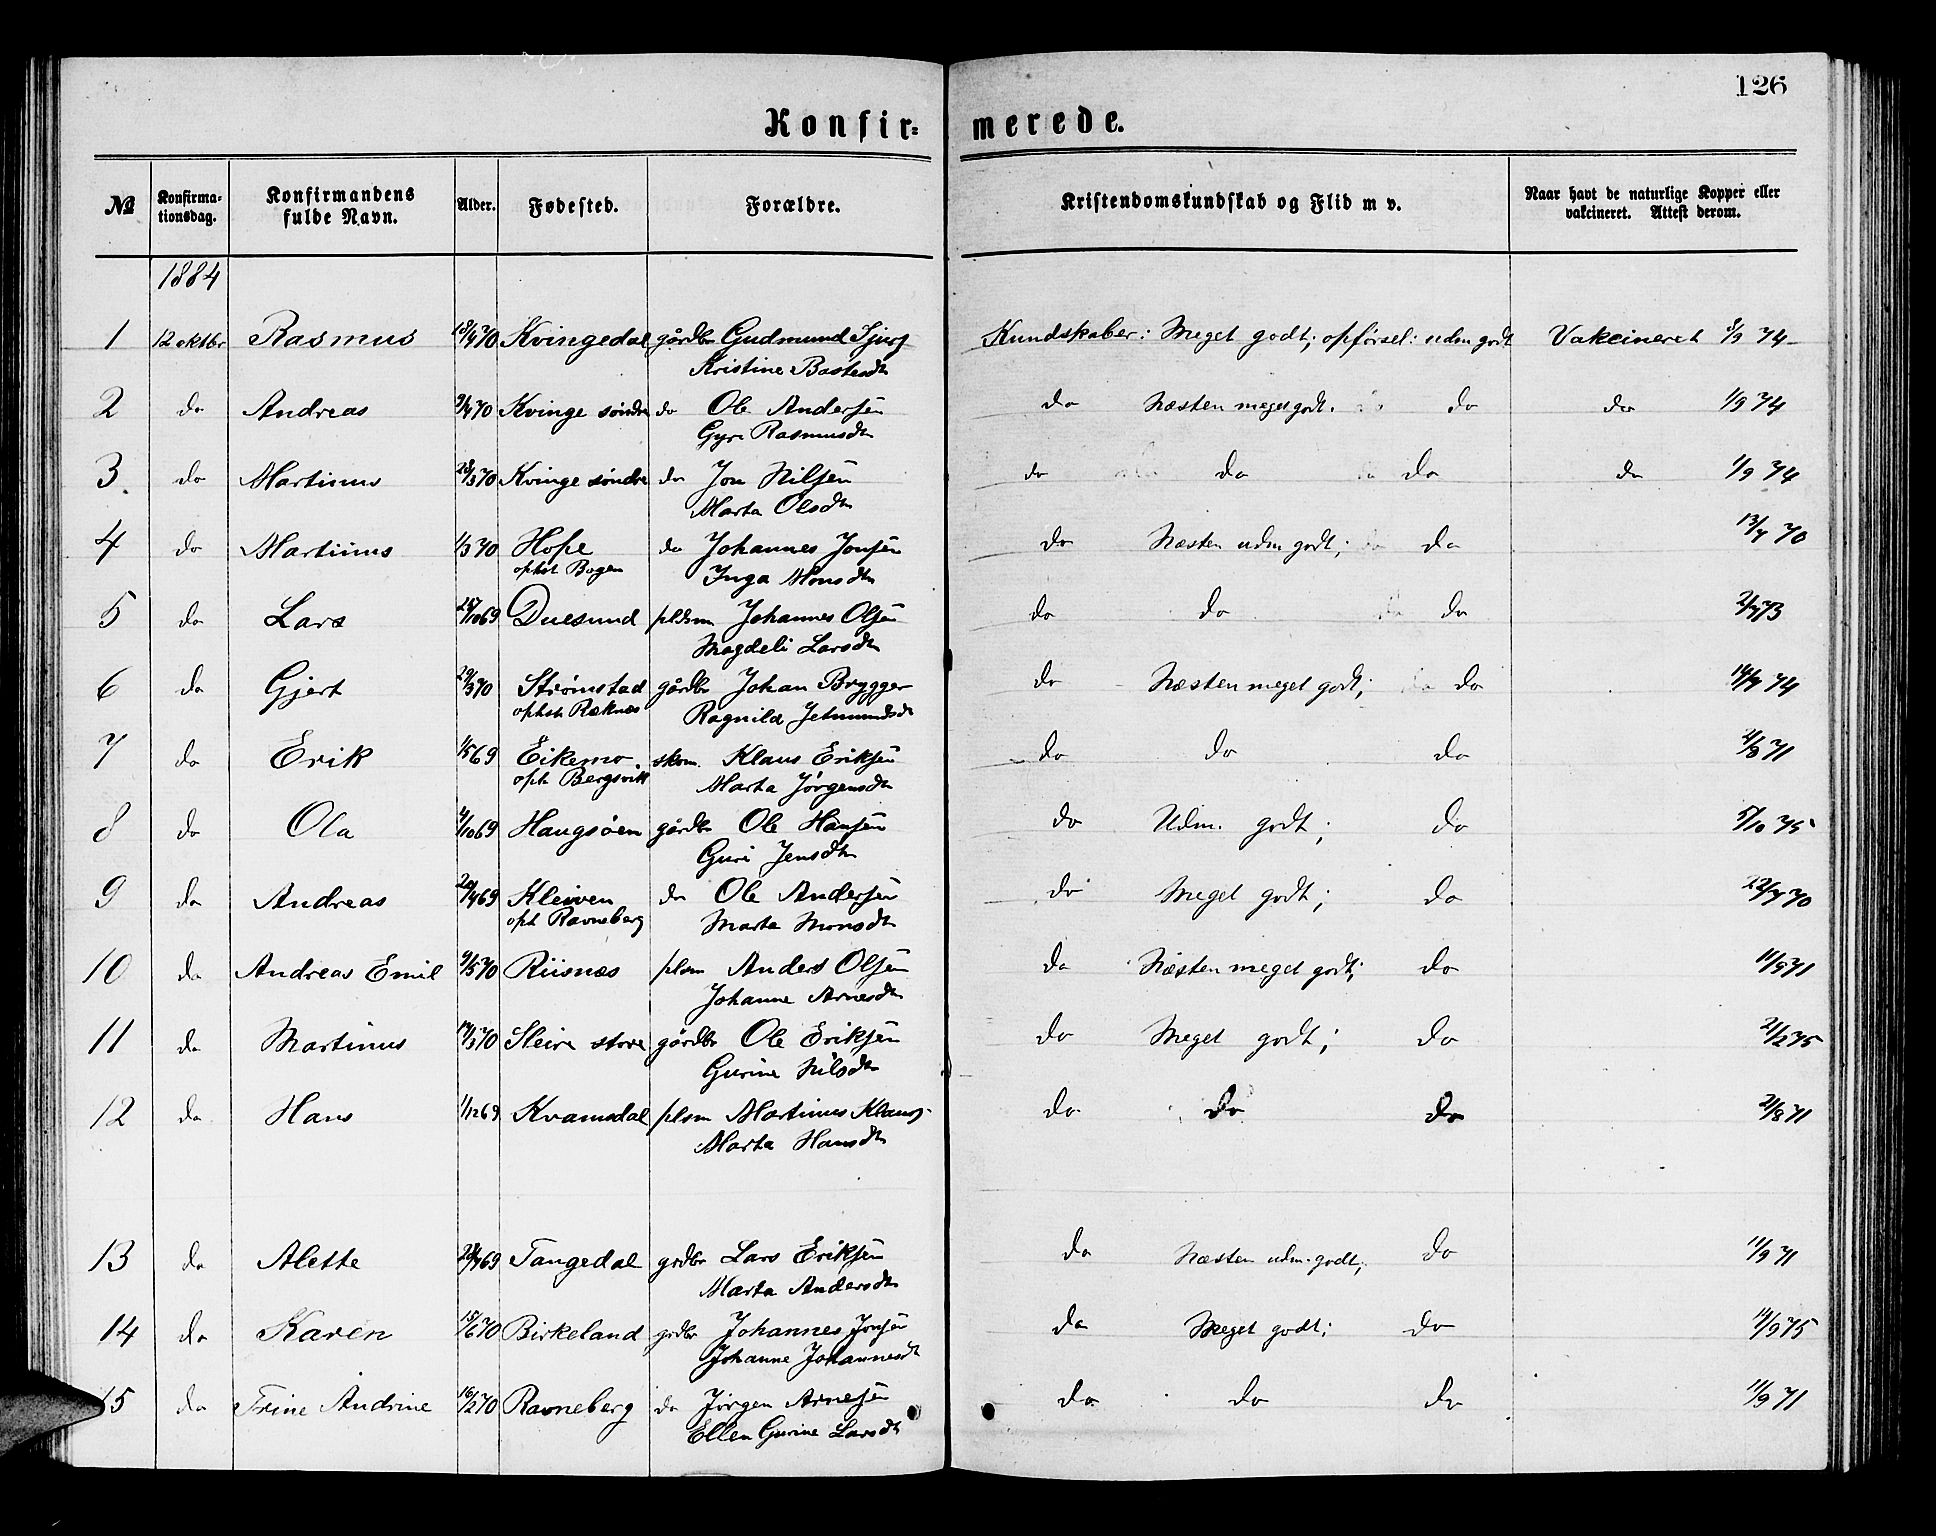 126
Konfir-merede.
№ Konfirmationsdag. Konfirmandens fulde Navn. Alder. Fødested. Forældre. Kristendomskundskab og Flid m v. Naar havt de naturlige Kopper eller vakcineret. Attest derom.
1884
1 12 oktbr Rasmus 18/4 70 Kvingedal gårdbr Gudmund Sjurs Kundskaber: Meget godt; opførsel: udm godt Vakcineret 74
Kristine Bastesdtr
2 do Andreas 9/4 70 Kvinge søndre do Ole Andersen do Næsten meget godt. do do 1/9 74
Gyri Rasmusdtr
3. do Martinus 28/3 70 Kvinge søndre do Jon Nilsen do do do do 1/9 74
Marta Olsdtr
4 do Martinus 1/3 70 Hope do Johannes Jonsen do Næsten udm godt; do 13/7 70
ophst Bogen Inga Monsdtr
5 do Lars 27/10 69 Duesund plsm Johannes Olsen do do do 73
Magdeli Larsdtr
6 do Gjert 29/3 70 Strømstad gårdbr Johan Brygger do Næsten meget godt; do 74
ophst Ræknes Ragnilda Jetmundsdt
7 do Erik 1/5 69 Eikemo skom. Klaus Eriksen do do do 71
oph Bergsvik Marta Jørgensdtr
8 do Ola 10 69 Haugsøen gårdbr Ole Hansen do Udm. godt; do 5/10 75
Guri Jensdtr
9 do Andreas 69 Kleiven do Ole Andersen do Meget godt; do 22/7 70
oph Ravneberg Marta Monsdtr
10 do Andreas Emil 9/5 70 Riisnæs plsm Anders Olsen do Næsten meget godt; do 11/9 71
Johanne Arnesdtr
11 do Martinus 70 Sleire store gårdbr Ole Eriksen do Meget godt; do 21/2 75
Gurine Nilsdtr
12 do Hans 1/12 69 Kvamsdal plsm Martinus Klaus do do do 21/8 71
Marta Hansdtr
13 do Alette 69 Tangedal grdbr Lars Eriksen do Næsten udm. godt; do 11/9 71
Marta Andersdtr
14 do Karen 15/6 70 Birkeland grdbr Johannes Jonsen do Meget godt; do 14/9 75
Johanne Johannesdt
15 do Trine Andrine 16/2 70 Ravneberg do Jörgen Arnesen do do do 11/9 71
Ellen Gurine Larsdtr